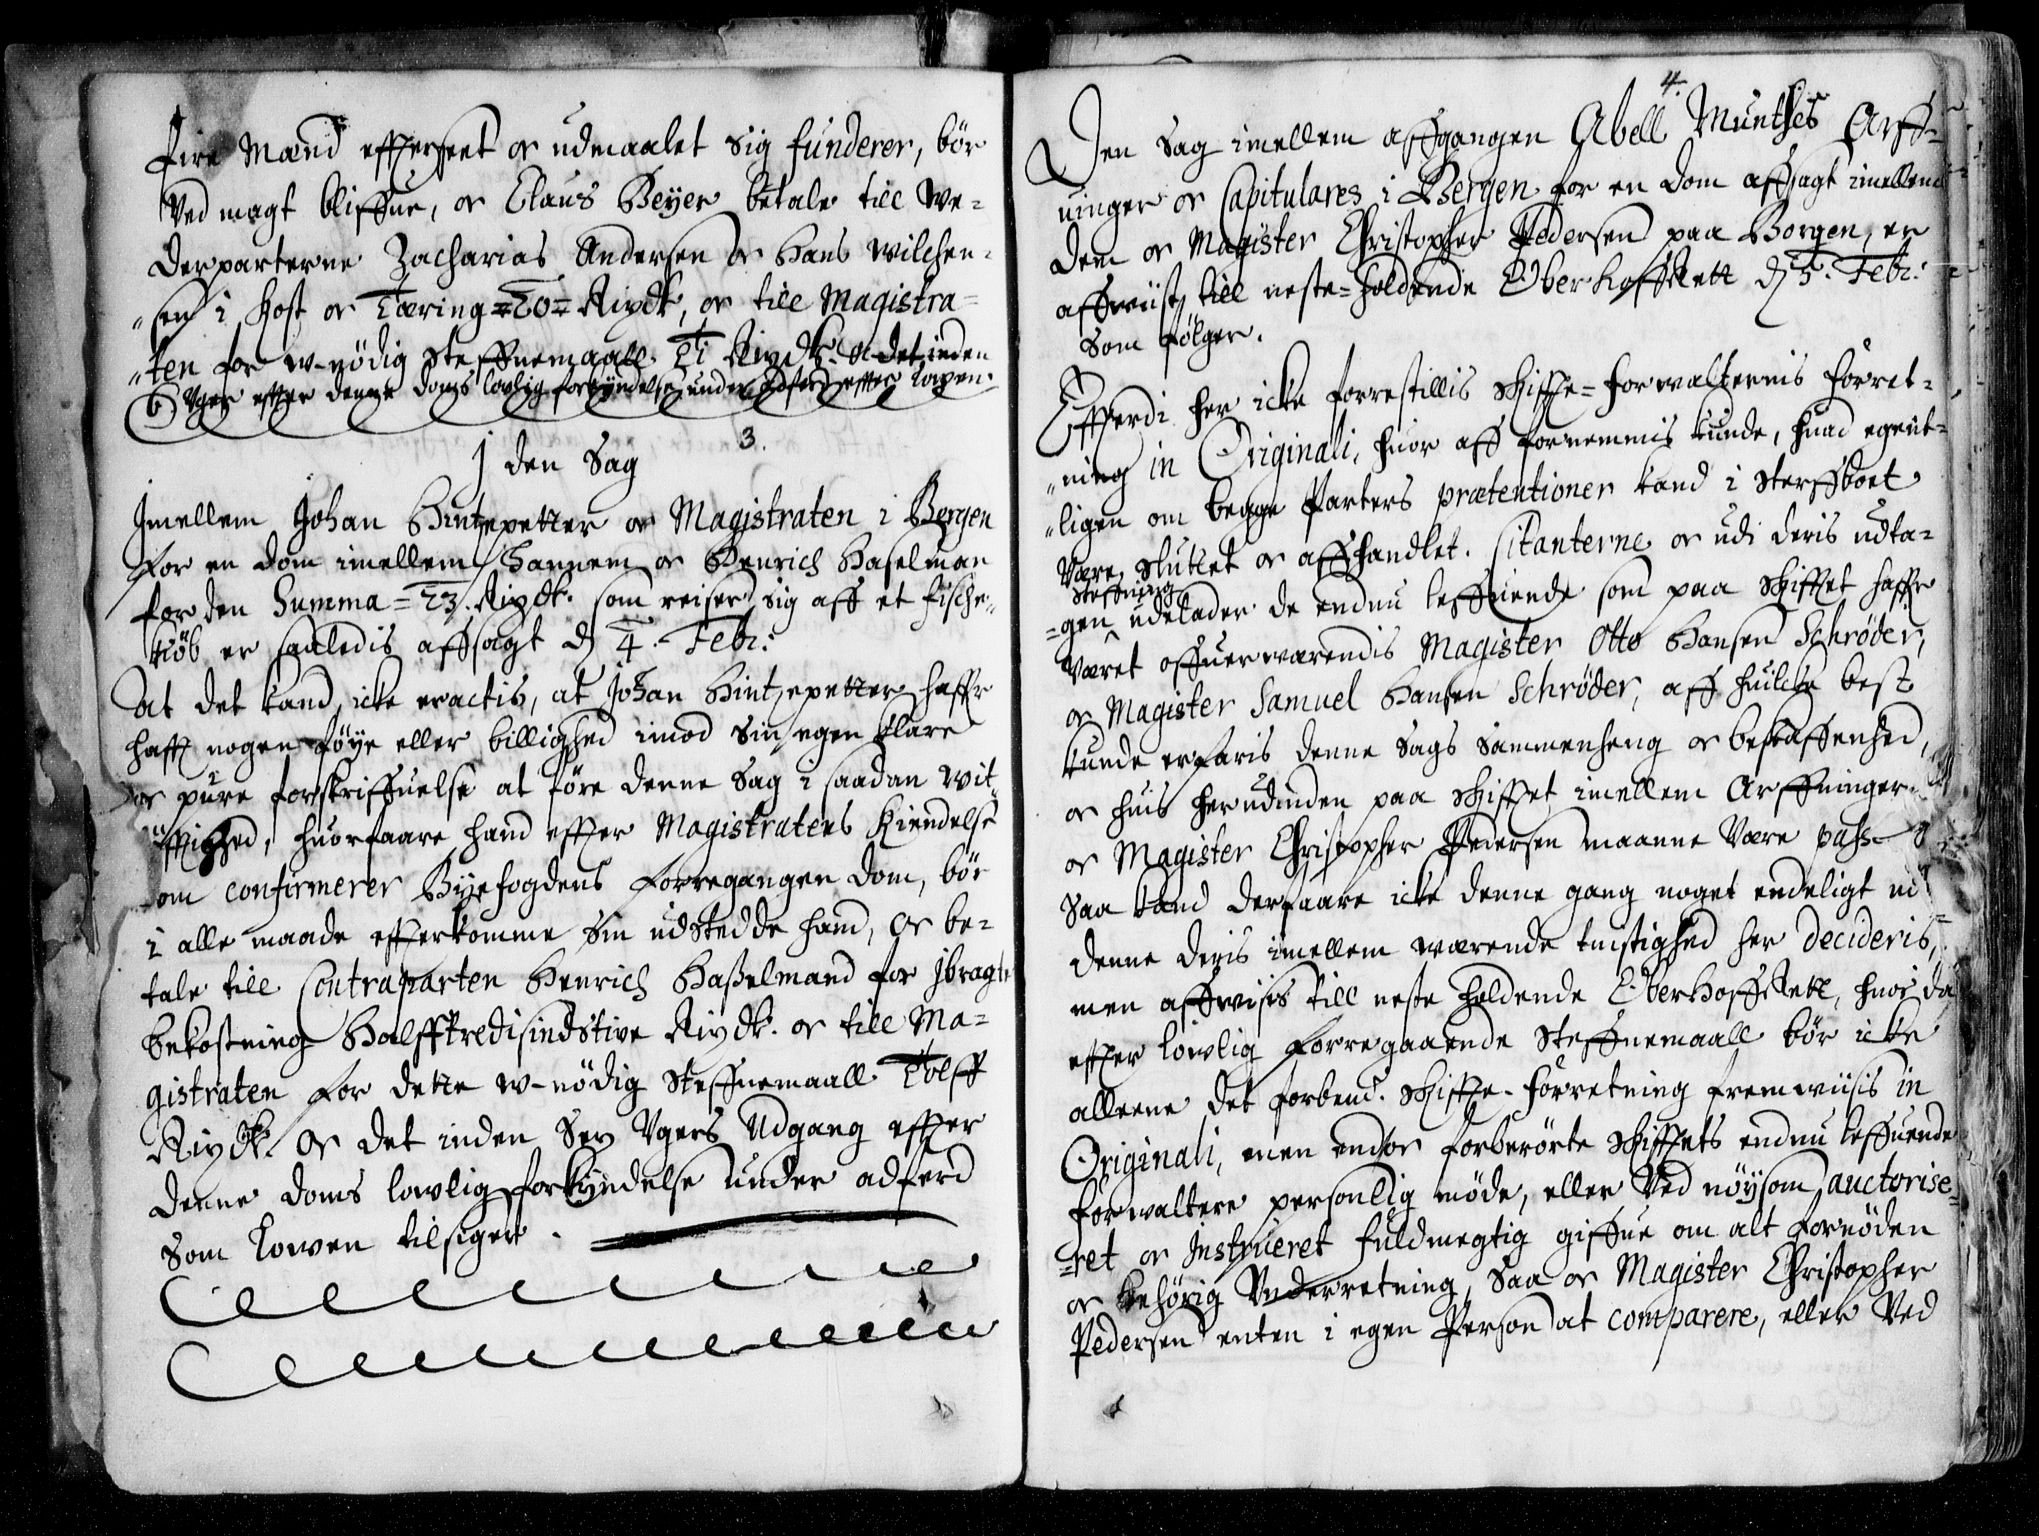 fire Mænd effterseet oc udmaalet sig funderer, bør
Ved magt bliffue, oc Claus Beyer betale till We-
derparterne Zacharias Andersen oc Hans Wilchen-
„sen i Kost oc Tæring =20= Rixdl, oc till Magistra-
„ten for w-nödig Steffnemaall. Ti Rixdlr. oc det inden
6 Uger effter denne doms lovlig forkyndelse under Adferd effter lowen.
3.
J den Sag
Jmellem Johan Hintzepetter oc Magistraten i Bergen
for en dom imellem Hannem oc Henrich Haselman
for den Summa = 23. Rixdlr. som reiser sig aff et Fische-
kiøb er saaledis affsagt d 4. Febr:
At det kand icke eractis, at Johan Hintzepetter haffr
hafft nogen føye eller billighed imod sin egen klare
oc pure forskriffuelse at føre denne Sag i saadan Wit-
„løfftighed, huorfaare hand effter Magistratens Kiendelse
som confirmerer Byefogdens forregangen dom, bør
i alle maade effterkomme sin udstedde haand, oc be-
tale till Contraparten Henrich Haßelmand for ibragte
bekostning Halfftredisindstive Rixdlr. oc till Ma-
gistraten for dette w-nödig Steffnemaall Tolff
Rixdlr. oc det inden Sex Ugers Udgang effter
denne doms lowlig forkyndelse under adferd
Som Lowen tilsiger.
4.
Den Sag imellem affgangen Abell Munthes Arff-
ninger oc Capitulares i Bergen for en dom affsagt imellem
dem oc Magister Christopher Pedersen paa Borgen, er
affwiist till neste-holdende Oberhoffrett d 5. Febr:
Som følger.
Efftterdi her icke forrestillis skiffte-forwalternis forret-
„ning in Originali, huor aff fornemmis kunde, huad egent-
„ligen om begge Parters prætentioner kand i Sterffboet
Være sluttet oc affhandlet. Citanterne oc udi deris udta-
Steffning
=gen udelader de endnu leffuende som paa skifftet haffr
Været offuerwærendis Magister Otto Hansen Schrøder,
oc Magister Samuel Hansen Schrøder, aff huilcke best
kunde erfaris denne Sags Sammenheng oc beskaffenhed,
oc huis herudinden paa skifftet imellem Arffninger
oc Magister Christopher Pedersen maanne Være pass-
Saa kand derfaare icke denne gang noget endeligt ud
denne deris imellem wærende tuistighed her decideris,
men affwisis till neste holdende Oberhoffrett, huor da
effter lowlig forregaaende Steffnemaall bør icke
alleene det forbend. skiffte-forretning fremwiisis in
Originali, men endoc forberørte skifftets endnu leffuende
forwaltere personlig møde, eller Ved nöysom auctorise-
=ret oc Instrueret fuldmegtig giffue om alt fornøden
oc behörig Underretning, Saa oc Magister Christopher
Pedersen enten i egen Person at comparere, eller Ved